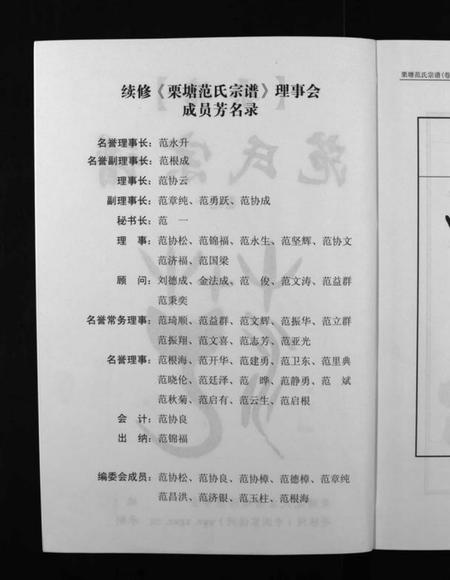 续修《栗塘范氏宗谱》理事会
成员芳名录
名誉理事长：范水升
名誉副理事长：范根成
理事长：范协云
副理事长：范章纯、范勇跃、范协成
秘书长：范　一
理　事：范协松、范锦福、范水生、范坚辉、范协文
范济福、范国梁
顾　问：刘德成、金法成、范　俊、范文涛、范益群
范秉奕
名誉常务理事：范琦顺、范益群、范文辉、范振华、范立群
范振翔、范文喜、范志芳、范亚光
名誉理事：范根海、范开华、范建勇、范卫东、范里典
范晓伦、范廷泽、范　晔、范静勇、范　斌
范秋菊、范启有、范云生、范启根
会　计：范协良
出　纳：范锦福
编委会成员：范协松、范协良、范协樟、范德樟、范章纯
范昌洪、范济银、范玉柱、范根海
栗塘范氏宗谱(卷